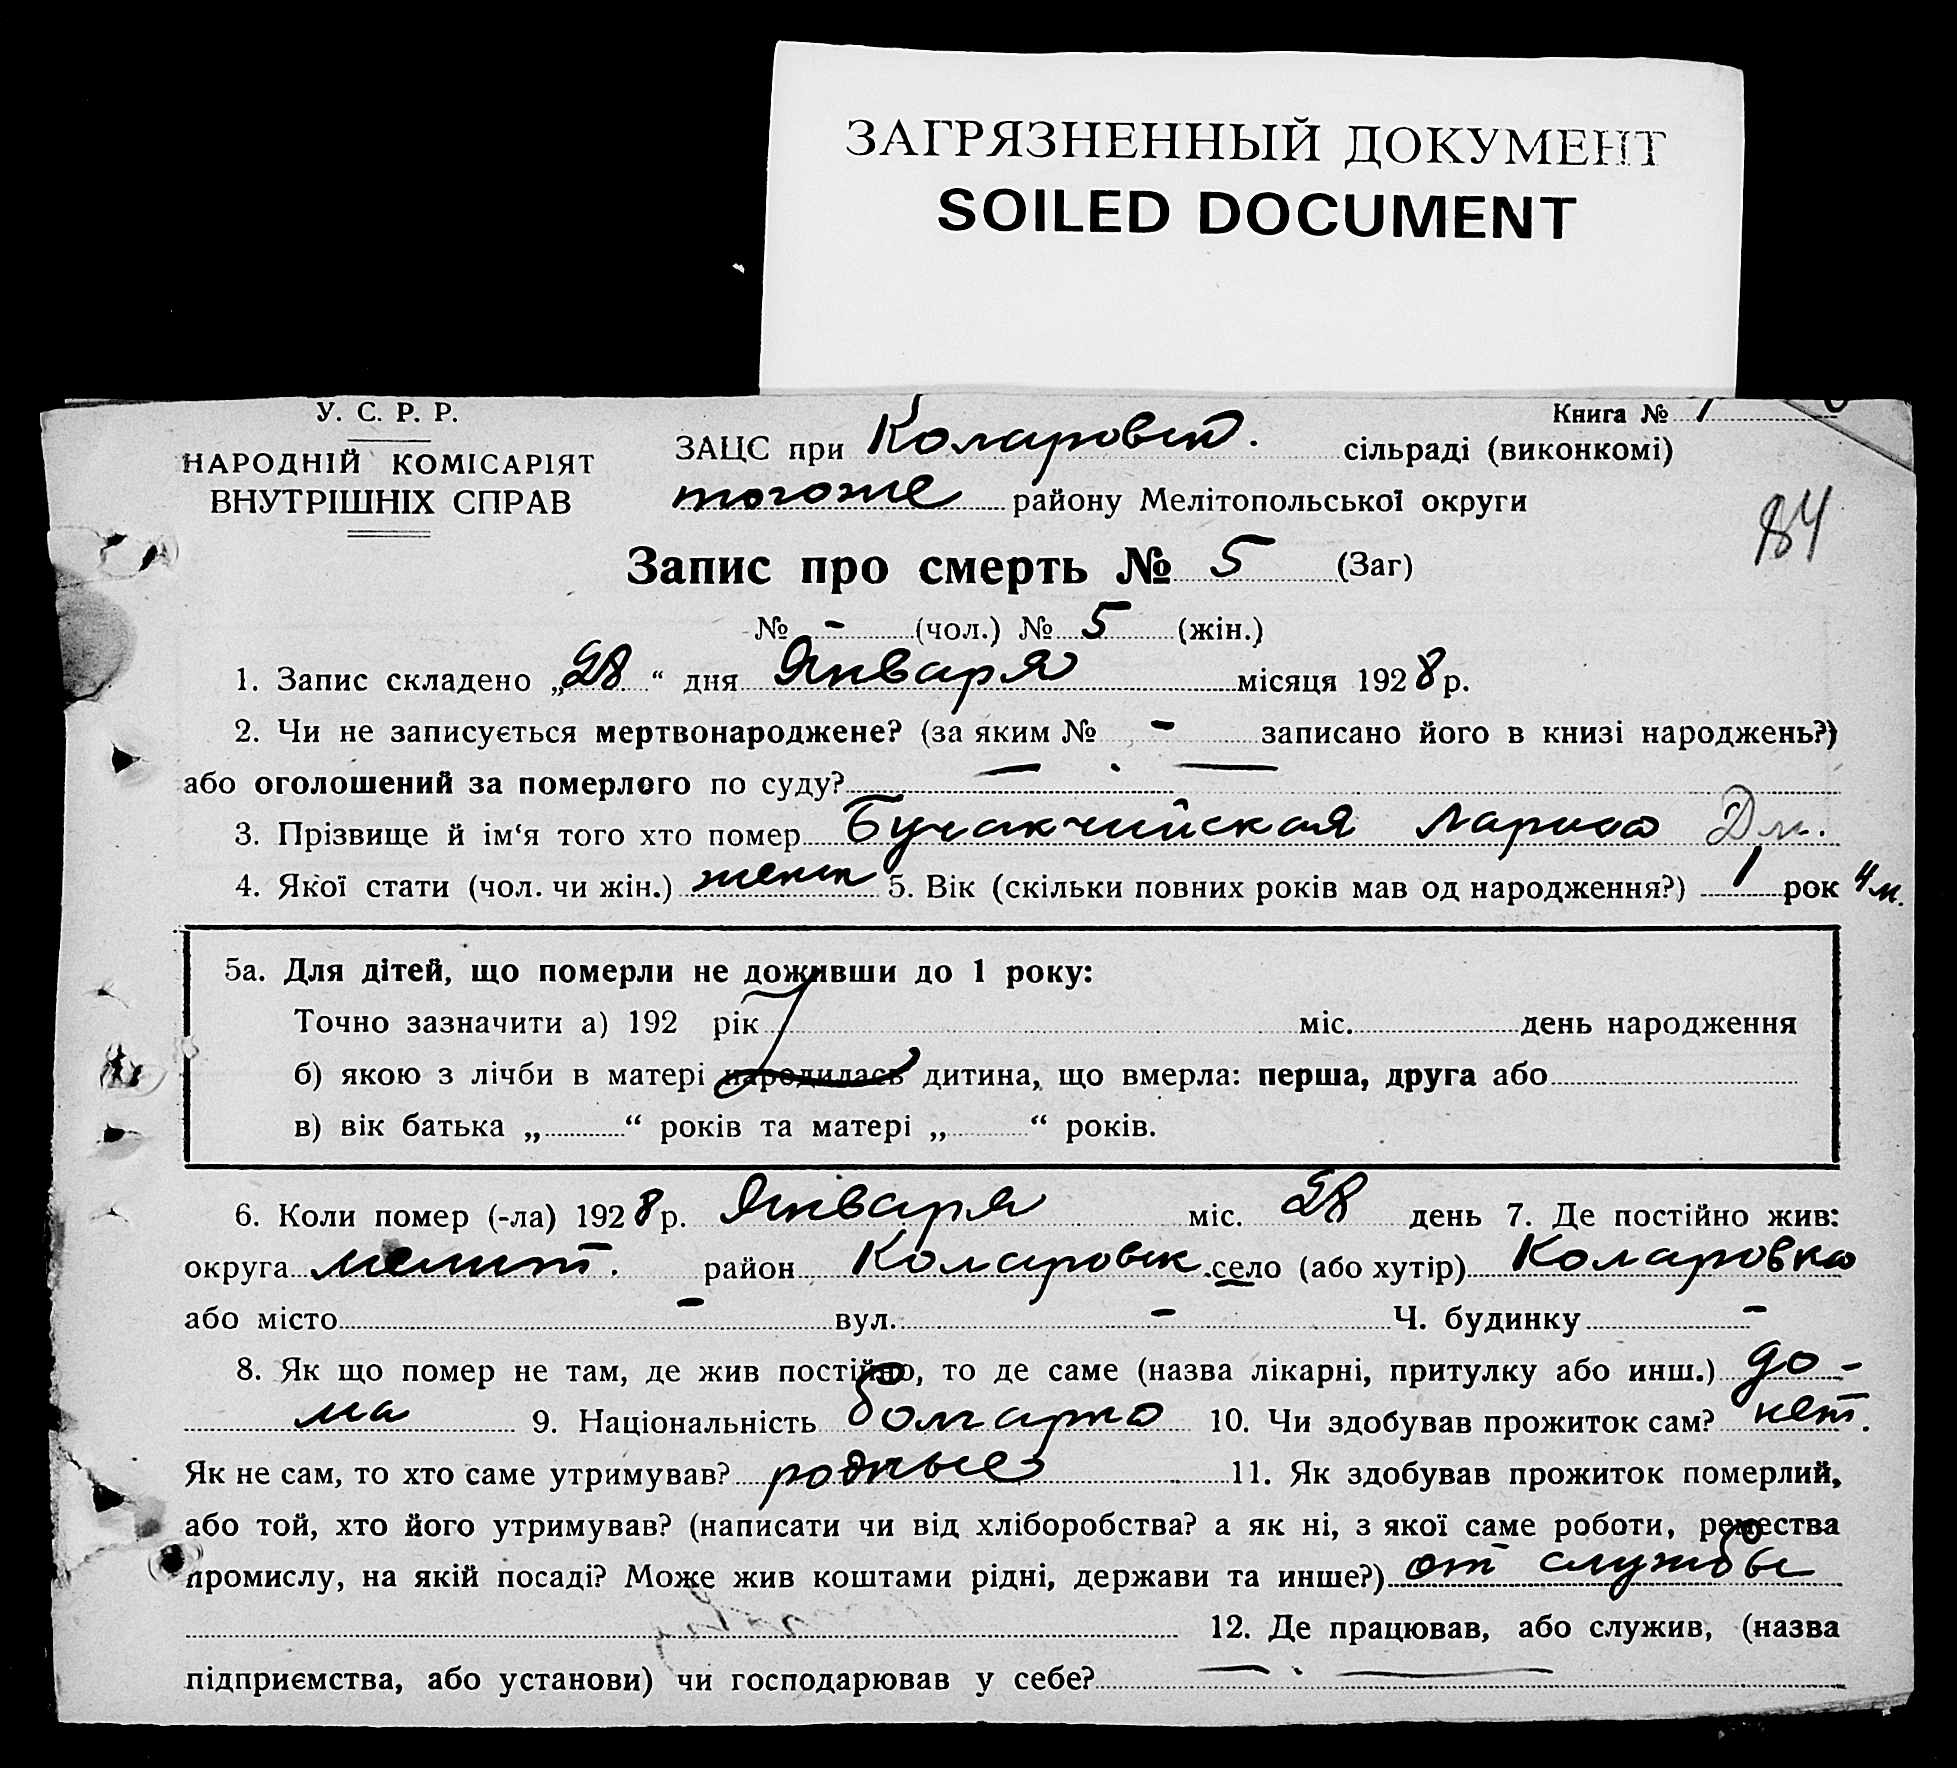 ЗАГРЯЗНЕННЫЙ ДОКУМЕНТ
SOILED DOCUMENT
У. С. Р. Р.
НАРОДНІЙ КОМІСАРІЯТ
ВНУТРІШНІХ СПРАВ
Книга №
ЗАЦС при Коларовск. сільраді (виконкомі)
тогоже району Мелітопольської округи
84
Запис про смерть № 5 (Заг)
№ - (чол.) № 5 (жін.)
1. Запис складено „28“ дня Января місяця 1928 р.
2. Чи не записується мертвонароджене? (за яким № - записано його в книзі народжень?)
або оголошений за померлого по суду? — . —
3. Прізвище й ім‘я того хто помер Лариса Дм.
4. Якої стати (чол. чи жін.) женск 5. Вік (скільки повних років мав од народження?) 1 рок 4 м.
5а. Для дітей, що померли не доживши до 1 року:
Точно зазначити а) 192 рік міс. день народження
б) якою з лічби в матері народилась дитина, що вмерла: перша, друга або
в) вік батька „ “ років та матері „ “ років.
6. Коли помер (-ла) 1928 р. Января міс. 28 день 7. Де постійно жив:
округа мелит. район Коларовск. село (або хутір) Коларовка
або місто - вул. - Ч. будинку -
8. Як що помер не там, де жив постійно, то де саме (назва лікарні, притулку або инш.) до-
ма 9. Національність болгарка 10. Чи здобував прожиток сам? нет.
Як не сам, то хто саме утримував? родные 11. Як здобував прожиток померлий,
або той, хто його утримував? (написати чи від хліборобства? а як ні, з якої саме роботи, ремества
промислу, на якій посаді? Може жив коштами рідні, держави та инше?) от службы
12. Де працював, або служив, (назва
підприємства, або установи) чи господарював у себе? — . —